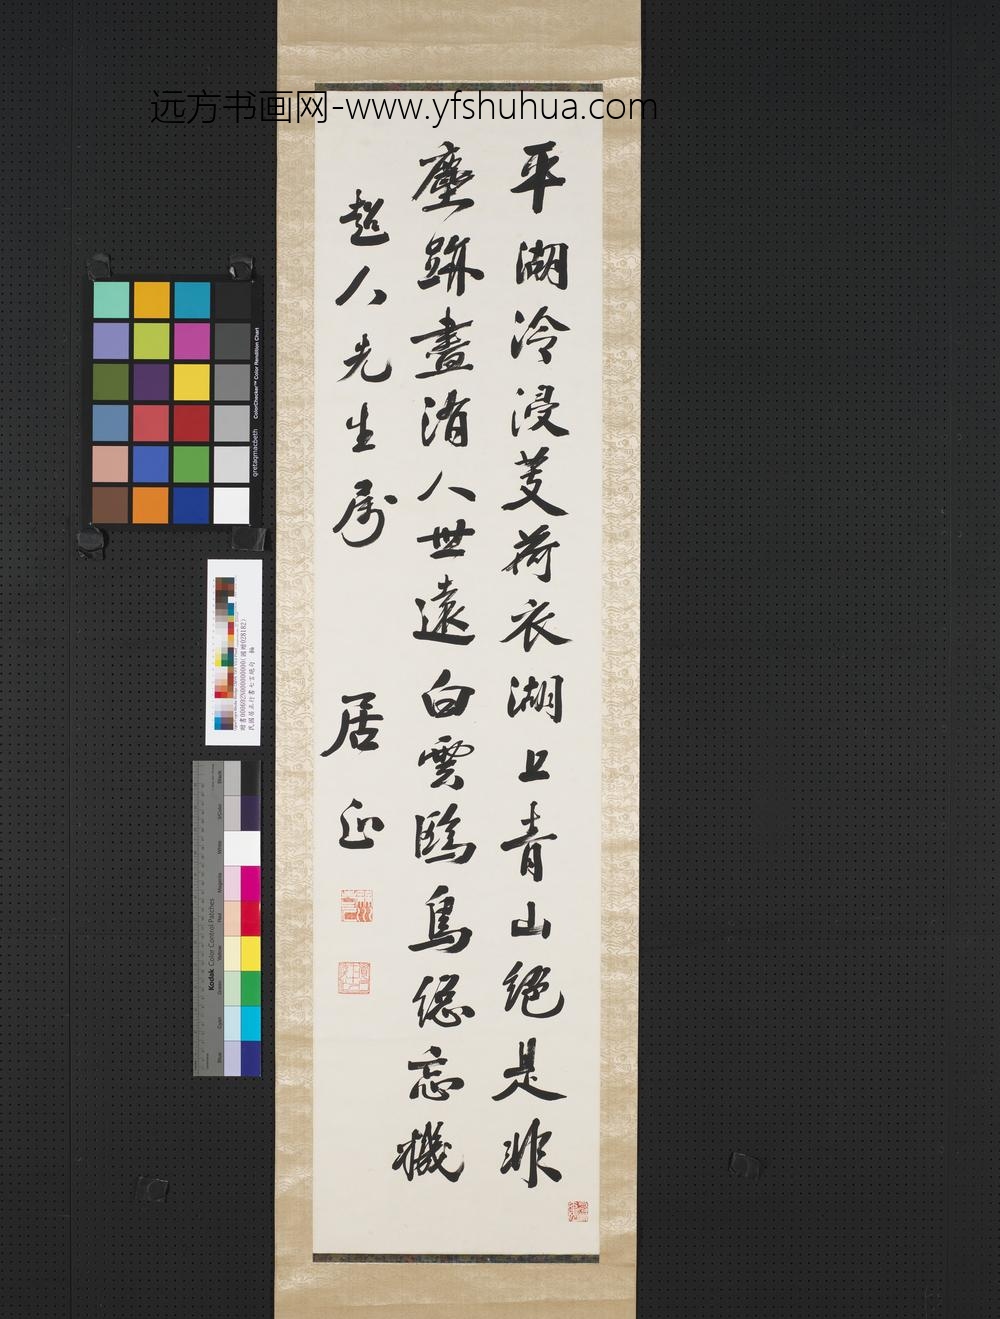 远方书画网-www.yfshuhua.com
平湖冷浸芰荷衣湖上青山絕是非
塵跡盡消人世遠白雲鷗鳥總忘機
超人先生属
居正
ColorChecker™ Color Rendition Chart
gretagmacbeth
Kodak Color Control Patches
Blue
Cyan
Green
Yellow
Red
Magenta
White
3/Color
Black